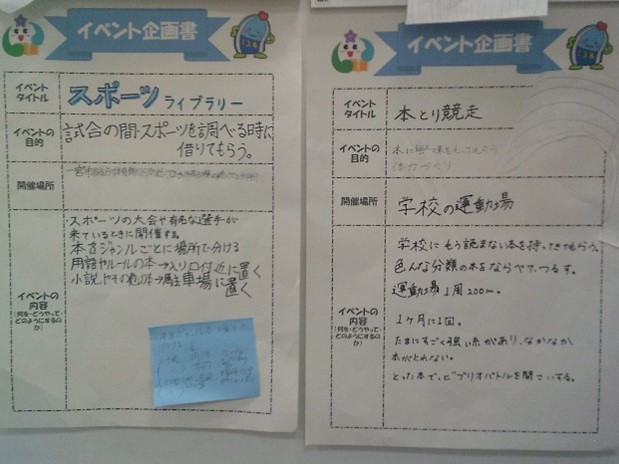 イベント企画書
イベント
タイトル
スポーツ ライブラリー
イベントの
目的
試合の間・スポーツを調べる時に
借りてもらう。
開催場所
イベントの
内容
(何を・どうやって・
どのようにするの
か)
・スポーツの大会や有名な選手が
来ているときに開催する。
本をジャンルごとに場所で分ける
用語やルールの本→入り口付近に置く
小説やその他の本→駐車場に置く
イベント企画書
イベント
タイトル
本とり競走
イベントの
目的
本に興味をもってもらう
体力づくり
開催場所
学校の運動場
イベントの
内容
(何を・どうやって・
どのようにするの
か)
学校にもう読まない本を持ってきてもらう。
色んな分類の本をならべてつるす。
運動場1周200m。
1ヶ月に1回。
たまにすごく強い糸があり、なかなか
本がとれない。
とった本で、ビブリオバトルを開さいする。